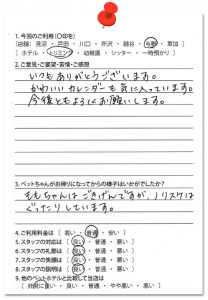 1. 今回のご利用(○印を)
[店舗: 見沼 ・ 戸田 ・ 川口 ・ 所沢 ・ 越谷 ・ 与野 ・ 草加 ]
[ ホテル ・ トリミング ・ 幼稚園 ・ シッター ・ 一時預かり ]
2. ご意見・ご要望・苦情・ご感想
いつもありがとうございます。
かわいいカレンダーも気に入っています。
今後ともよろしくお願いします。
3. ペットちゃんがお帰りになってからの様子はいかがでしたか?
ももちゃんはごきげんですが、ノリスケは
ぐったりしています。
4. ご利用料金は [ 高い ・ 普通 ・ 安い ]
5. スタッフの対応は [ 良い ・ 普通 ・ 悪い ]
6. スタッフの礼節は [ 良い ・ 普通 ・ 悪い ]
7. スタッフの笑顔は [ 良い ・ 普通 ・ 悪い ]
8. スタッフの説明は [ 良い ・ 普通 ・ 悪い ]
9. 他のペットホテルと比較して当店は
[ 非常に良い ・ 良い ・ 普通 ・ やや悪い ・ 悪い ]